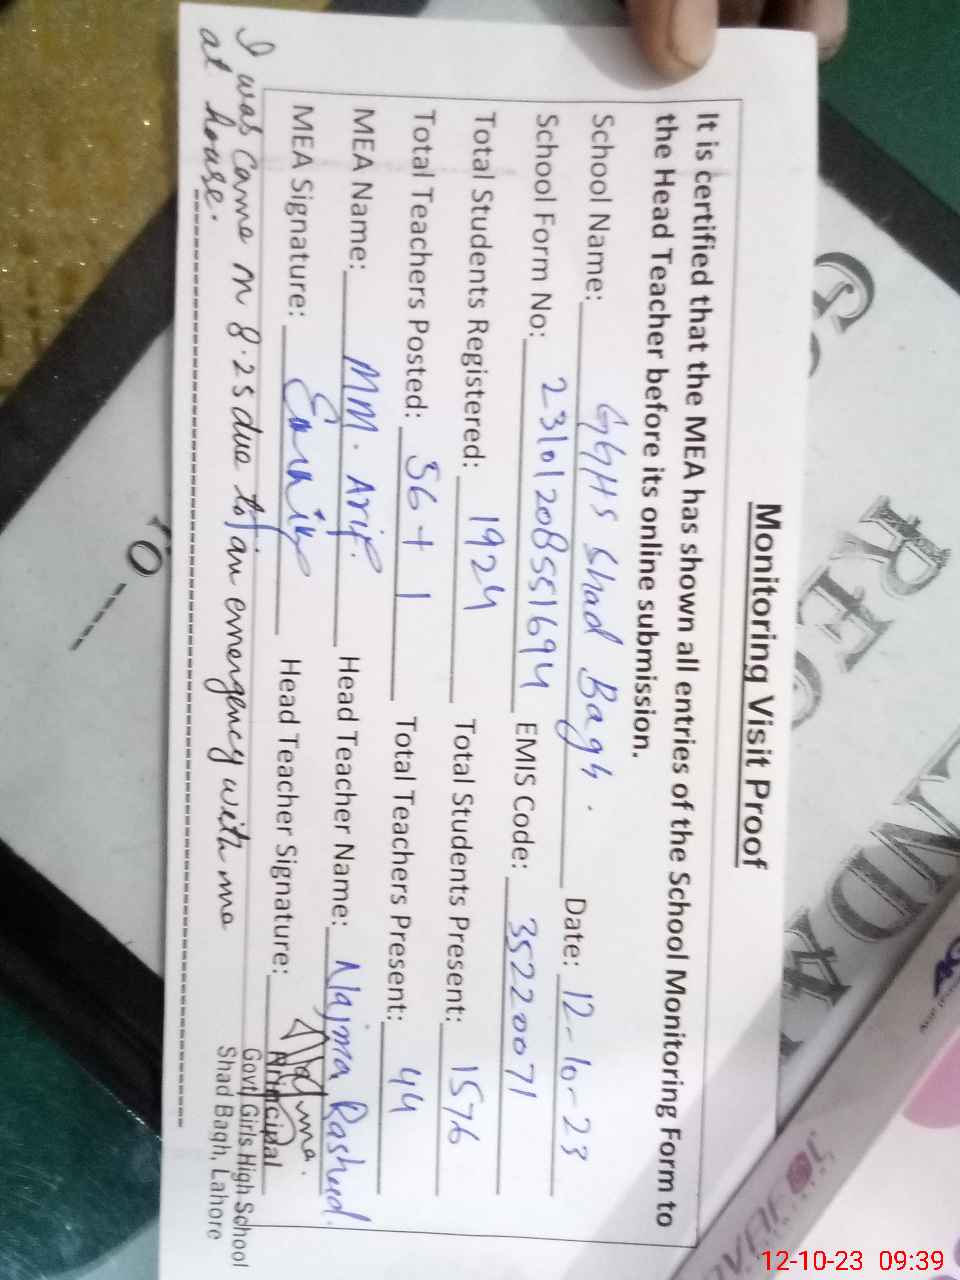 Monitoring Visit Proof
It is certified that the MEA has shown all entries of the School Monitoring Form to
the Head Teacher before its online submission.
School Name: GGHS Shad Bagh. Date: 12-10-23
School Form No: 23101208551694 EMIS Code: 35220071
Total Students Registered: 1924 Total Students Present: 1576
Total Teachers Posted: 56+1 Total Teachers Present: 44
MEA Name: MM. Arif. Head Teacher Name: Najma Rashid.
MEA Signature: Head Teacher Signature: Najma.
Principal
Govt Girls High School
Shad Bagh, Lahore
I was came n 8.25 due to an emergency with me
at house.
12-10-23 09:39